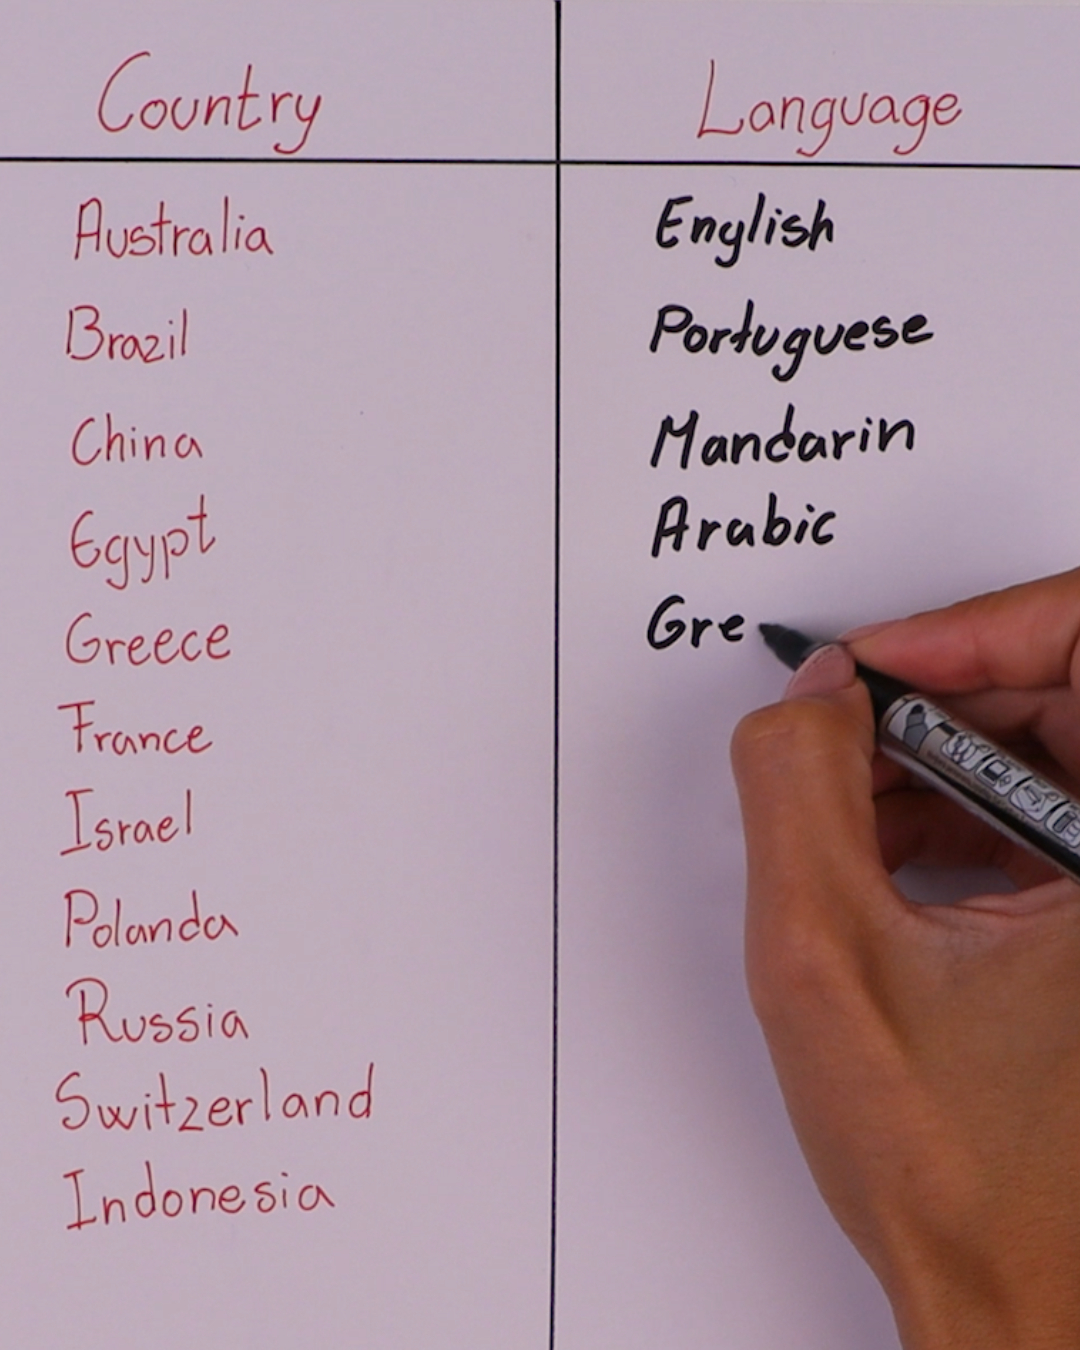 Country Language
Australia English
Brazil Portuguese
China Mandarin
Egypt Arabic
Greece Gre
France
Israel
Polanda
Russia
Switzerland
Indonesia